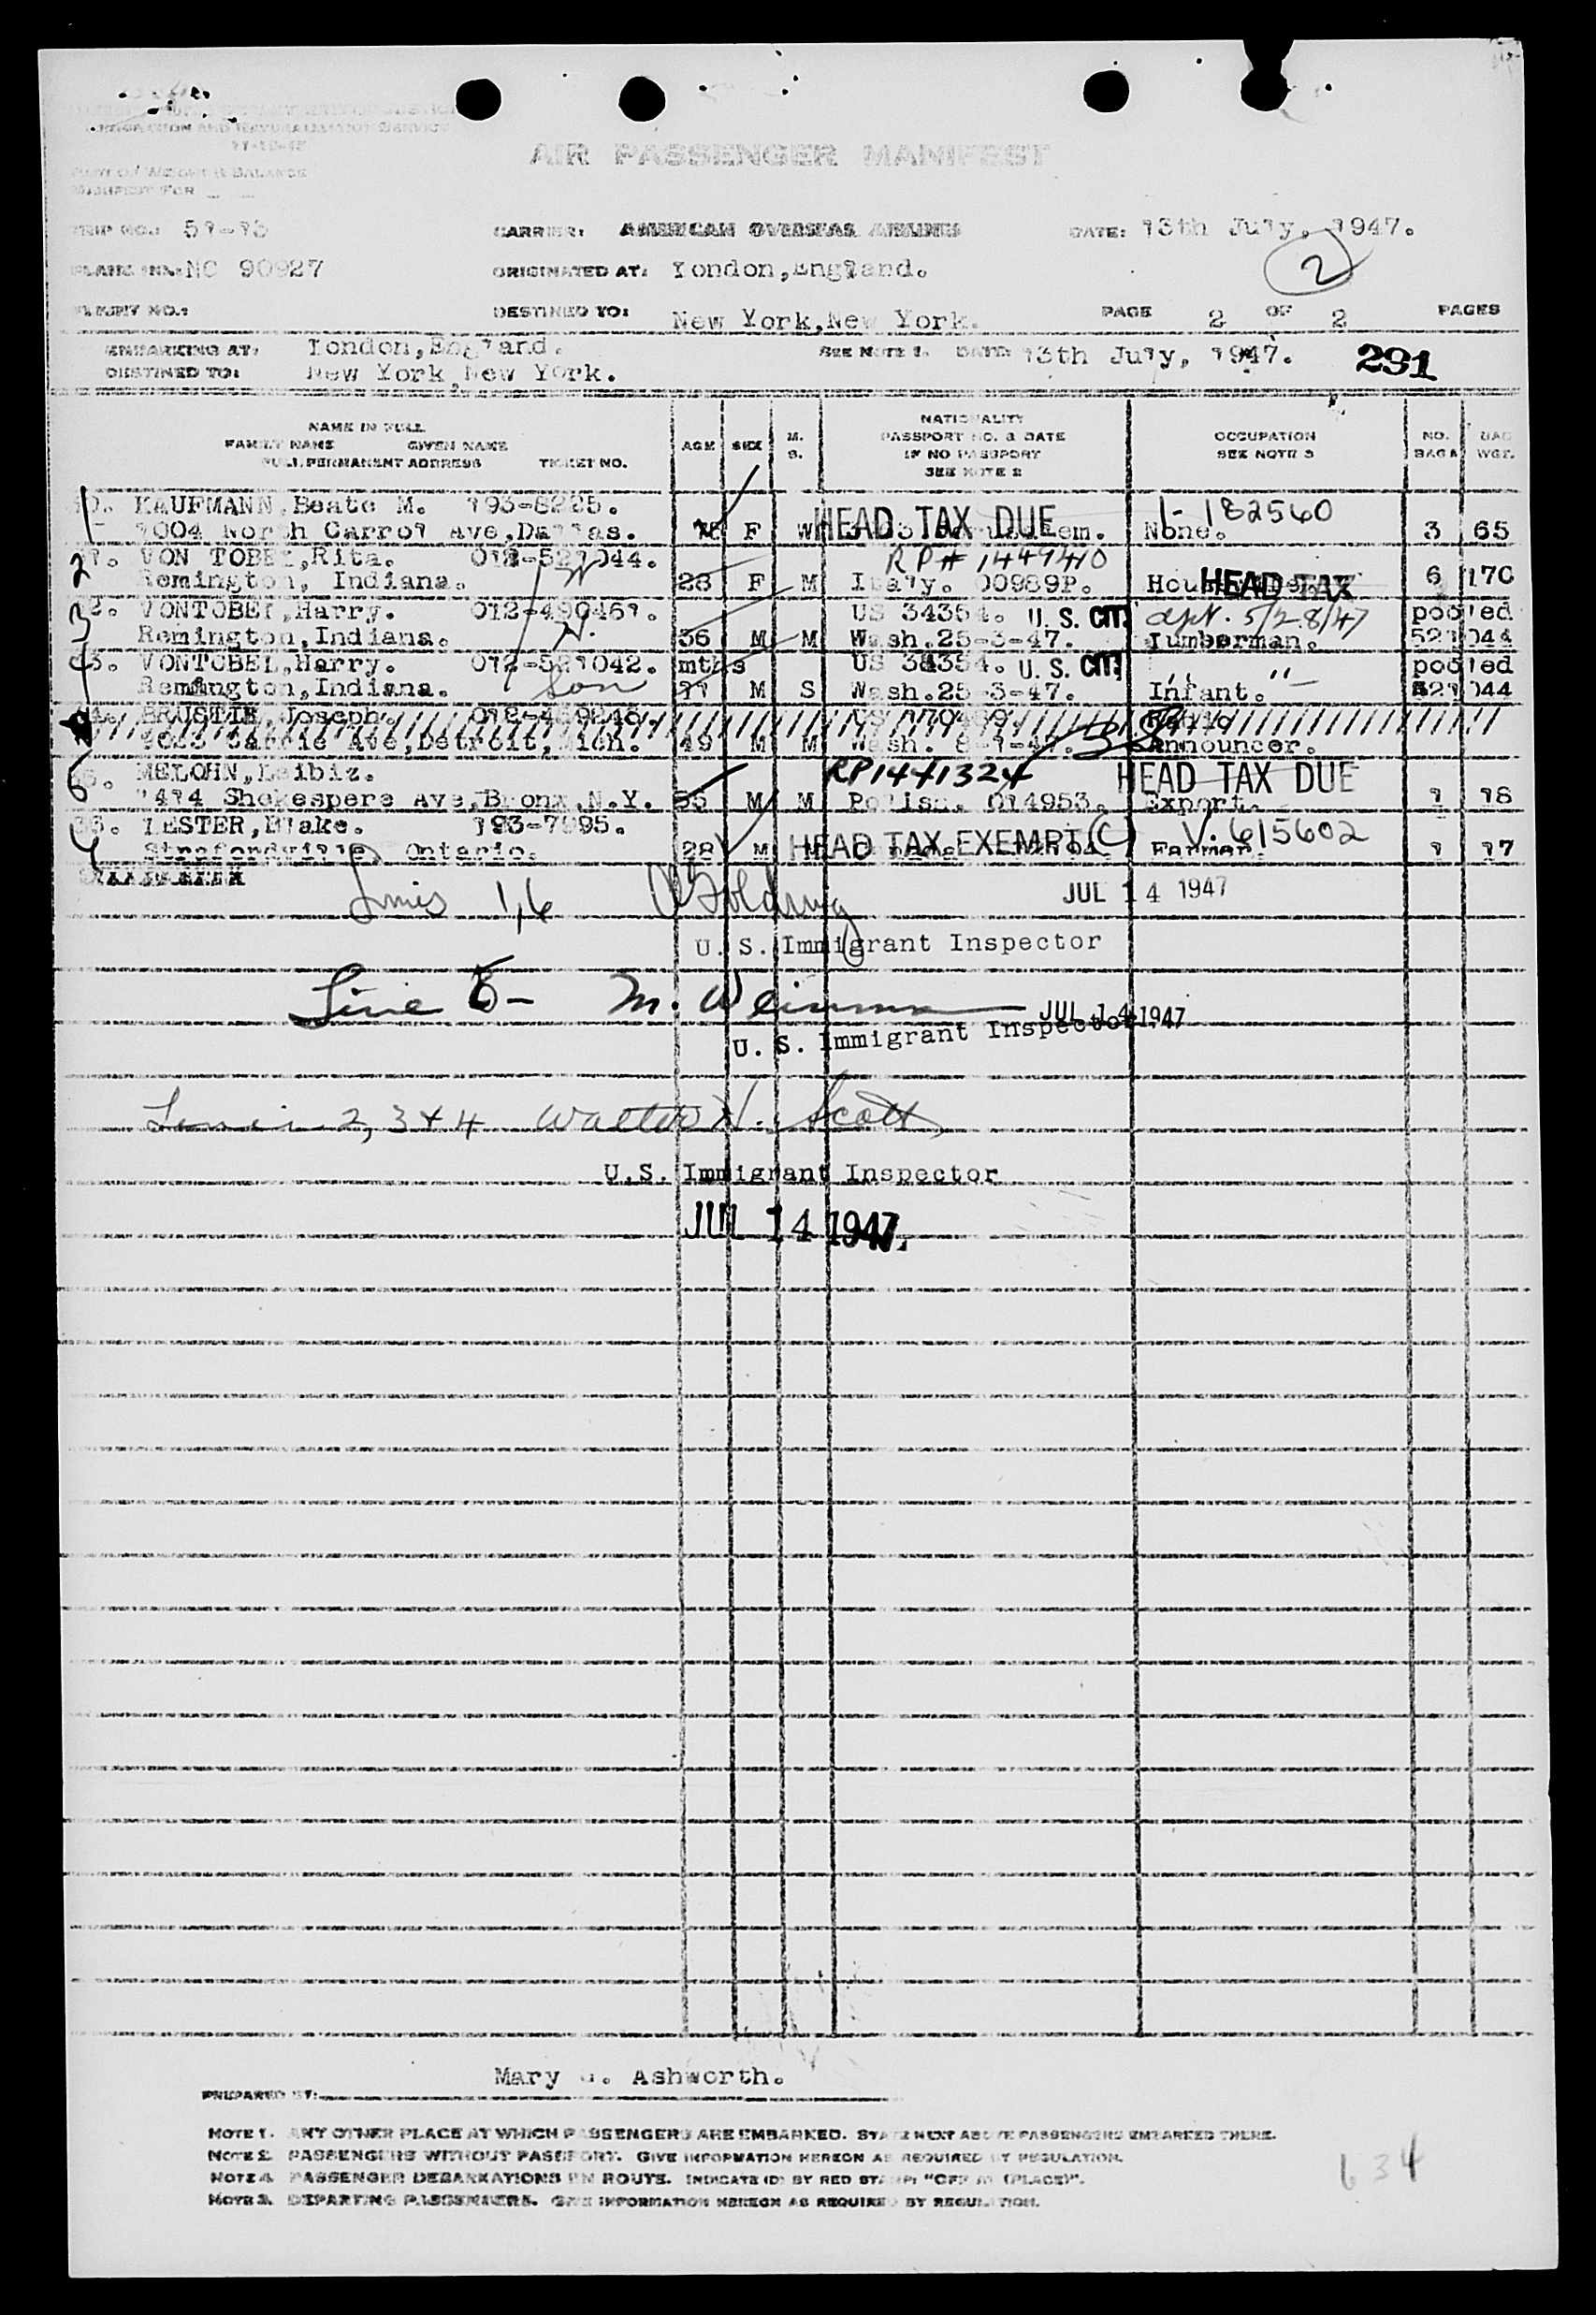 AIR PASSENGER MANIFEST
TRIP NO.: 51-13 CARRIER: AMERICAN OVERSEAS AIRLINES DATE: 13th July, 1947.
NC 90927 ORIGINATED AT: London, England. 2
FLIGHT NO.: DESTINED TO: New York, New York. PAGE 2 OF 2 PAGES
EMBARKING AT: London, England. SEE NOTE 1. DATE 13th July, 1947. 291
DESTINED TO: New York, New York.
NAME IN FULL
FAMILY NAME GIVEN NAME
FULL PERMANENT ADDRESS TICKET NO.
AGE SEX M. S.
NATIONALITY
PASSPORT NO. & DATE
IF NO PASSPORT
SEE NOTE 2
OCCUPATION
SEE NOTE 3
NO. BAGS BAG WGT.
1 KAUFMANN, Beate M. 193-8225. 1-182560
Carrol Ave, Dallas. F W HEAD TAX DUE None. 3 65
2 VON TOBEL, Rita. RP# 1449410
Remington, Indiana. W 28 F M Italy. 00989P. HEAD TAX 6 170
3 VONTOBEL, Harry. 012-490461. US 34354. U. S. CIT. 5/28/47 pooled
Remington, Indiana. H. 36 M M Wash. 25-3-47. Lumberman. 521044
4 VONTOBEL, Harry. 012-521042. mths US 34354. U. S. CIT. " pooled
Remington, Indiana. son 11 M S Wash. 25-3-47. Infant. 521044
Joseph. Radio
Ave, Detroit, Mich. 49 M M Wash. Announcer.
6 MELOHN, Leibiz. RP1441324 HEAD TAX DUE
1414 Shakespere Ave, Bronx, N.Y. 55 M M Polish. 014953. Export. 1 18
LESTER, Blake. 193-7995. V. 615602
Straffordville, Ontario. 28 M HEAD TAX EXEMPT (C) Farmer. 1 17
Lines 1,6 Golding JUL 14 1947
U. S. Immigrant Inspector
Line 5- M. JUL 14 1947
U. S. Immigrant Inspector
Lines 2, 3 & 4 Walter N. Scott
U.S. Immigrant Inspector
JUL 14 1947
Mary G. Ashworth.
PREPARED BY:
NOTE 1. ANY OTHER PLACE AT WHICH PASSENGERS ARE EMBARKED. STATE NEXT ABOVE PASSENGERS EMBARKED THERE.
NOTE 2. PASSENGERS WITHOUT PASSPORT. GIVE INFORMATION HEREON AS REQUIRED BY REGULATION.
NOTE 4. PASSENGER DEBARKATIONS EN ROUTE. INDICATE ID BY RED STAMP: "OFF AT (PLACE)".
NOTE 3. DEPARTING PASSENGERS. GIVE INFORMATION HEREON AS REQUIRED BY REGULATION.
634